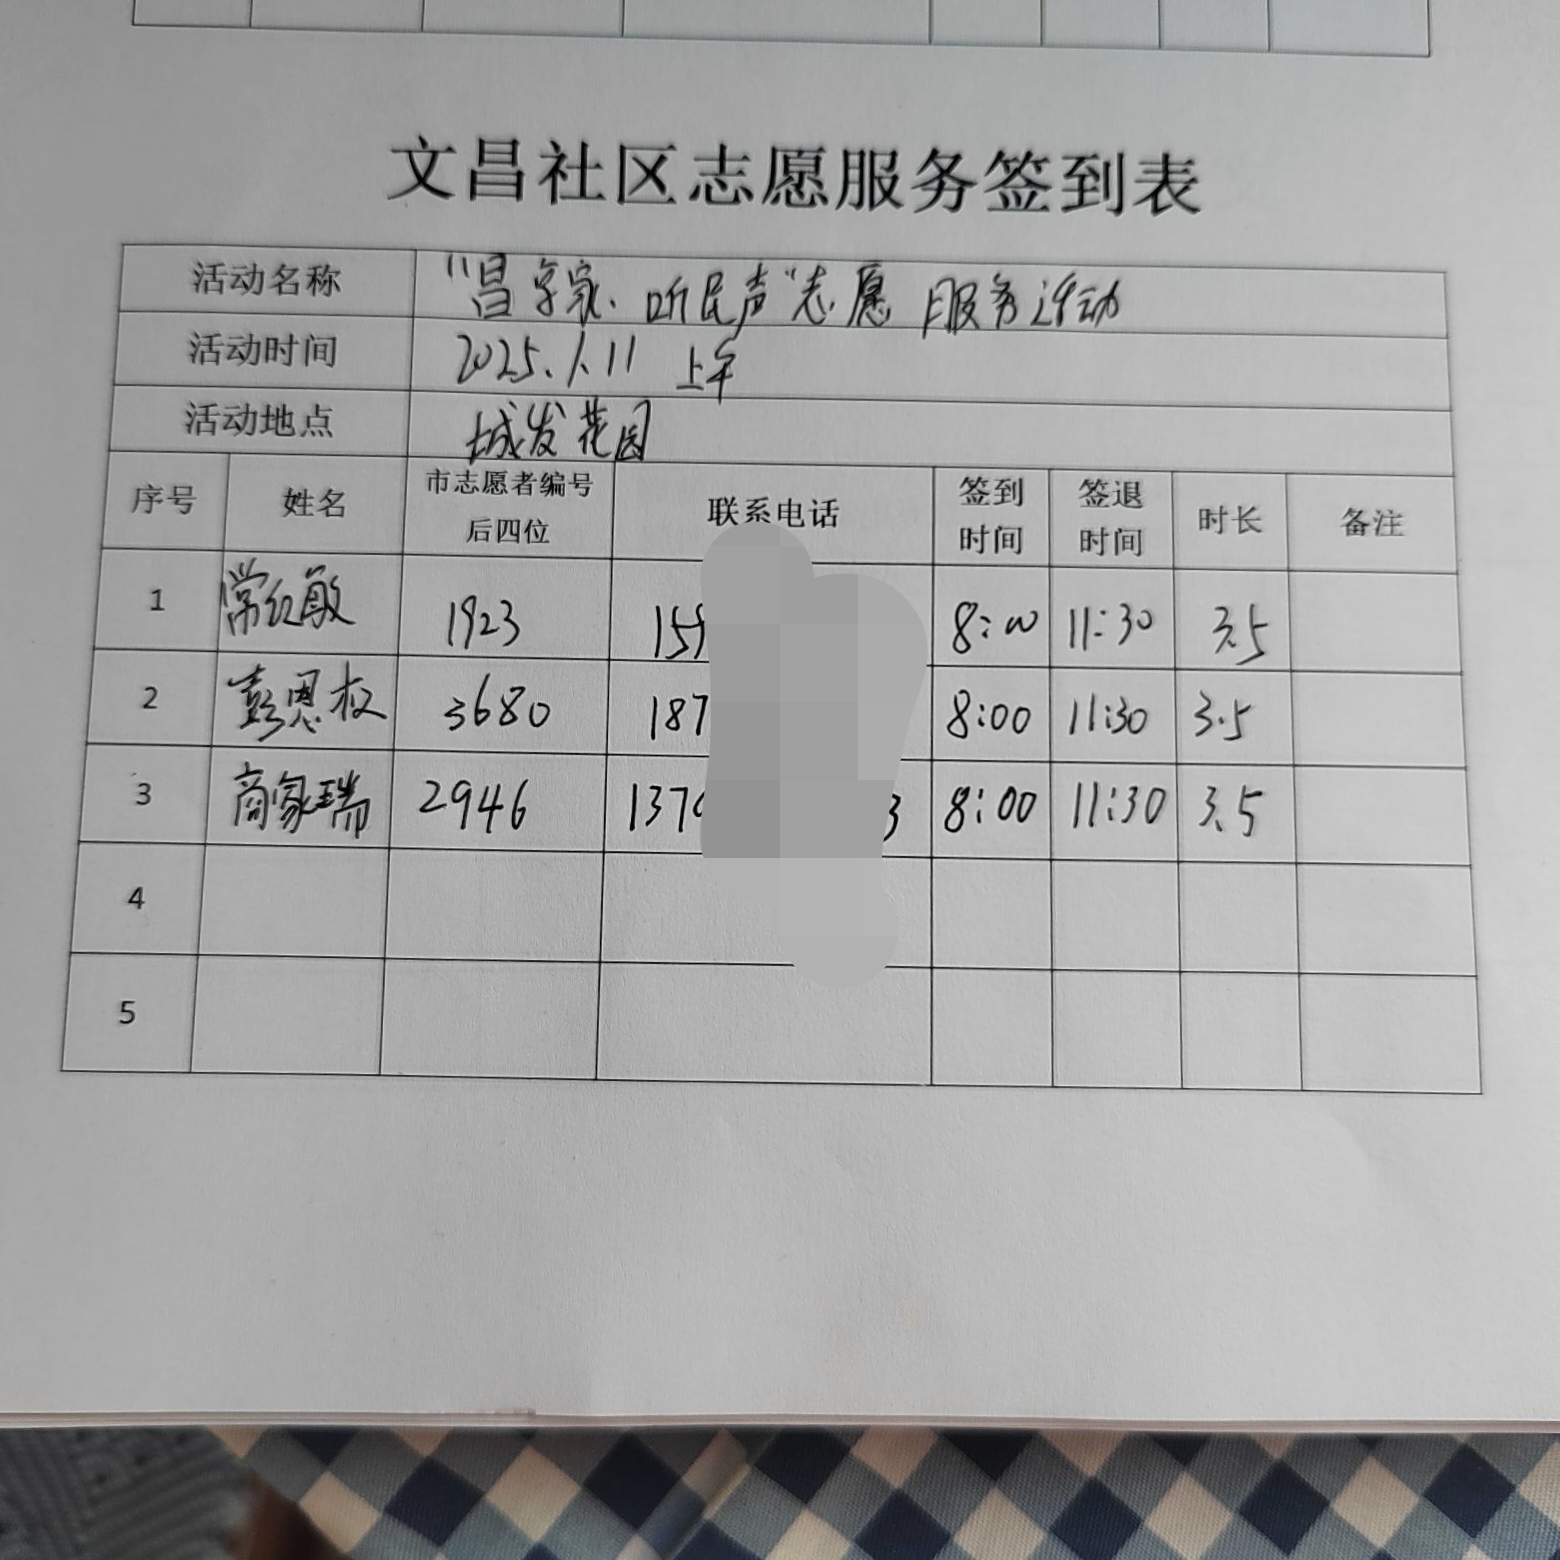 文昌社区志愿服务签到表
活动名称 "昌字家·听民声"志愿服务活动
活动时间 2025.1.11 上午
活动地点 城发花园
序号 姓名 市志愿者编号后四位 联系电话 签到时间 签退时间 时长 备注
1 常红敏 1923 159 8:00 11:30 3.5
2 彭恩权 3680 187 8:00 11:30 3.5
3 商家瑞 2946 137 3 8:00 11:30 3.5
4
5